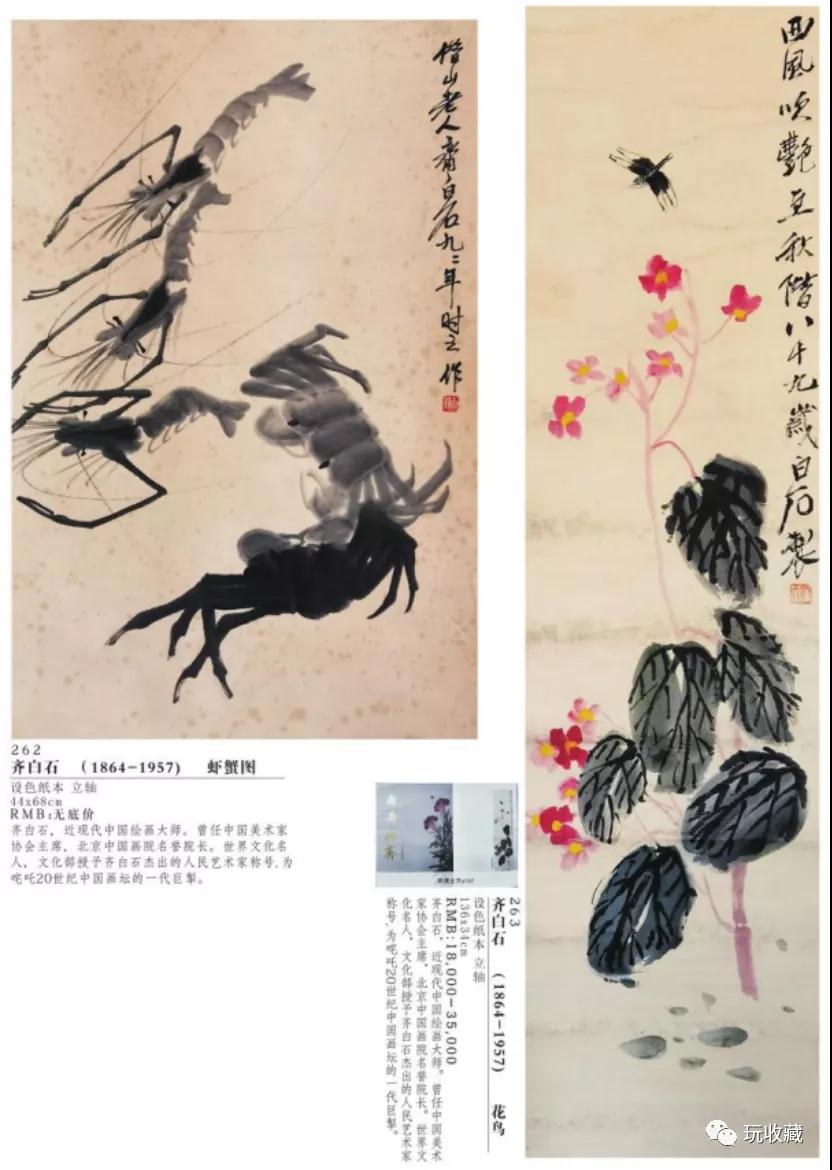 借山老人齊白石九二年时之作
262
齐白石 (1864-1957) 虾蟹图
设色纸本 立轴
44x68cm
RMB:无底价
齐白石，近现代中国绘画大师。曾任中国美术家
协会主席，北京中国画院名誉院长。世界文化名
人，文化部授予齐白石杰出的人民艺术家称号,为
咤吒20世纪中国画坛的一代巨掣。
西風吹艷在秋階八十九歲白石製
263
齐白石 (1864-1957) 花鸟
设色纸本 立轴
136x34cm
RMB:18,000-35,000
齐白石，近现代中国绘画大师。曾任中国美术
家协会主席，北京中国画院名誉院长。世界文
化名人，文化部授予齐白石杰出的人民艺术家
称号,为咤吒20世纪中国画坛的一代巨掣。
玩收藏